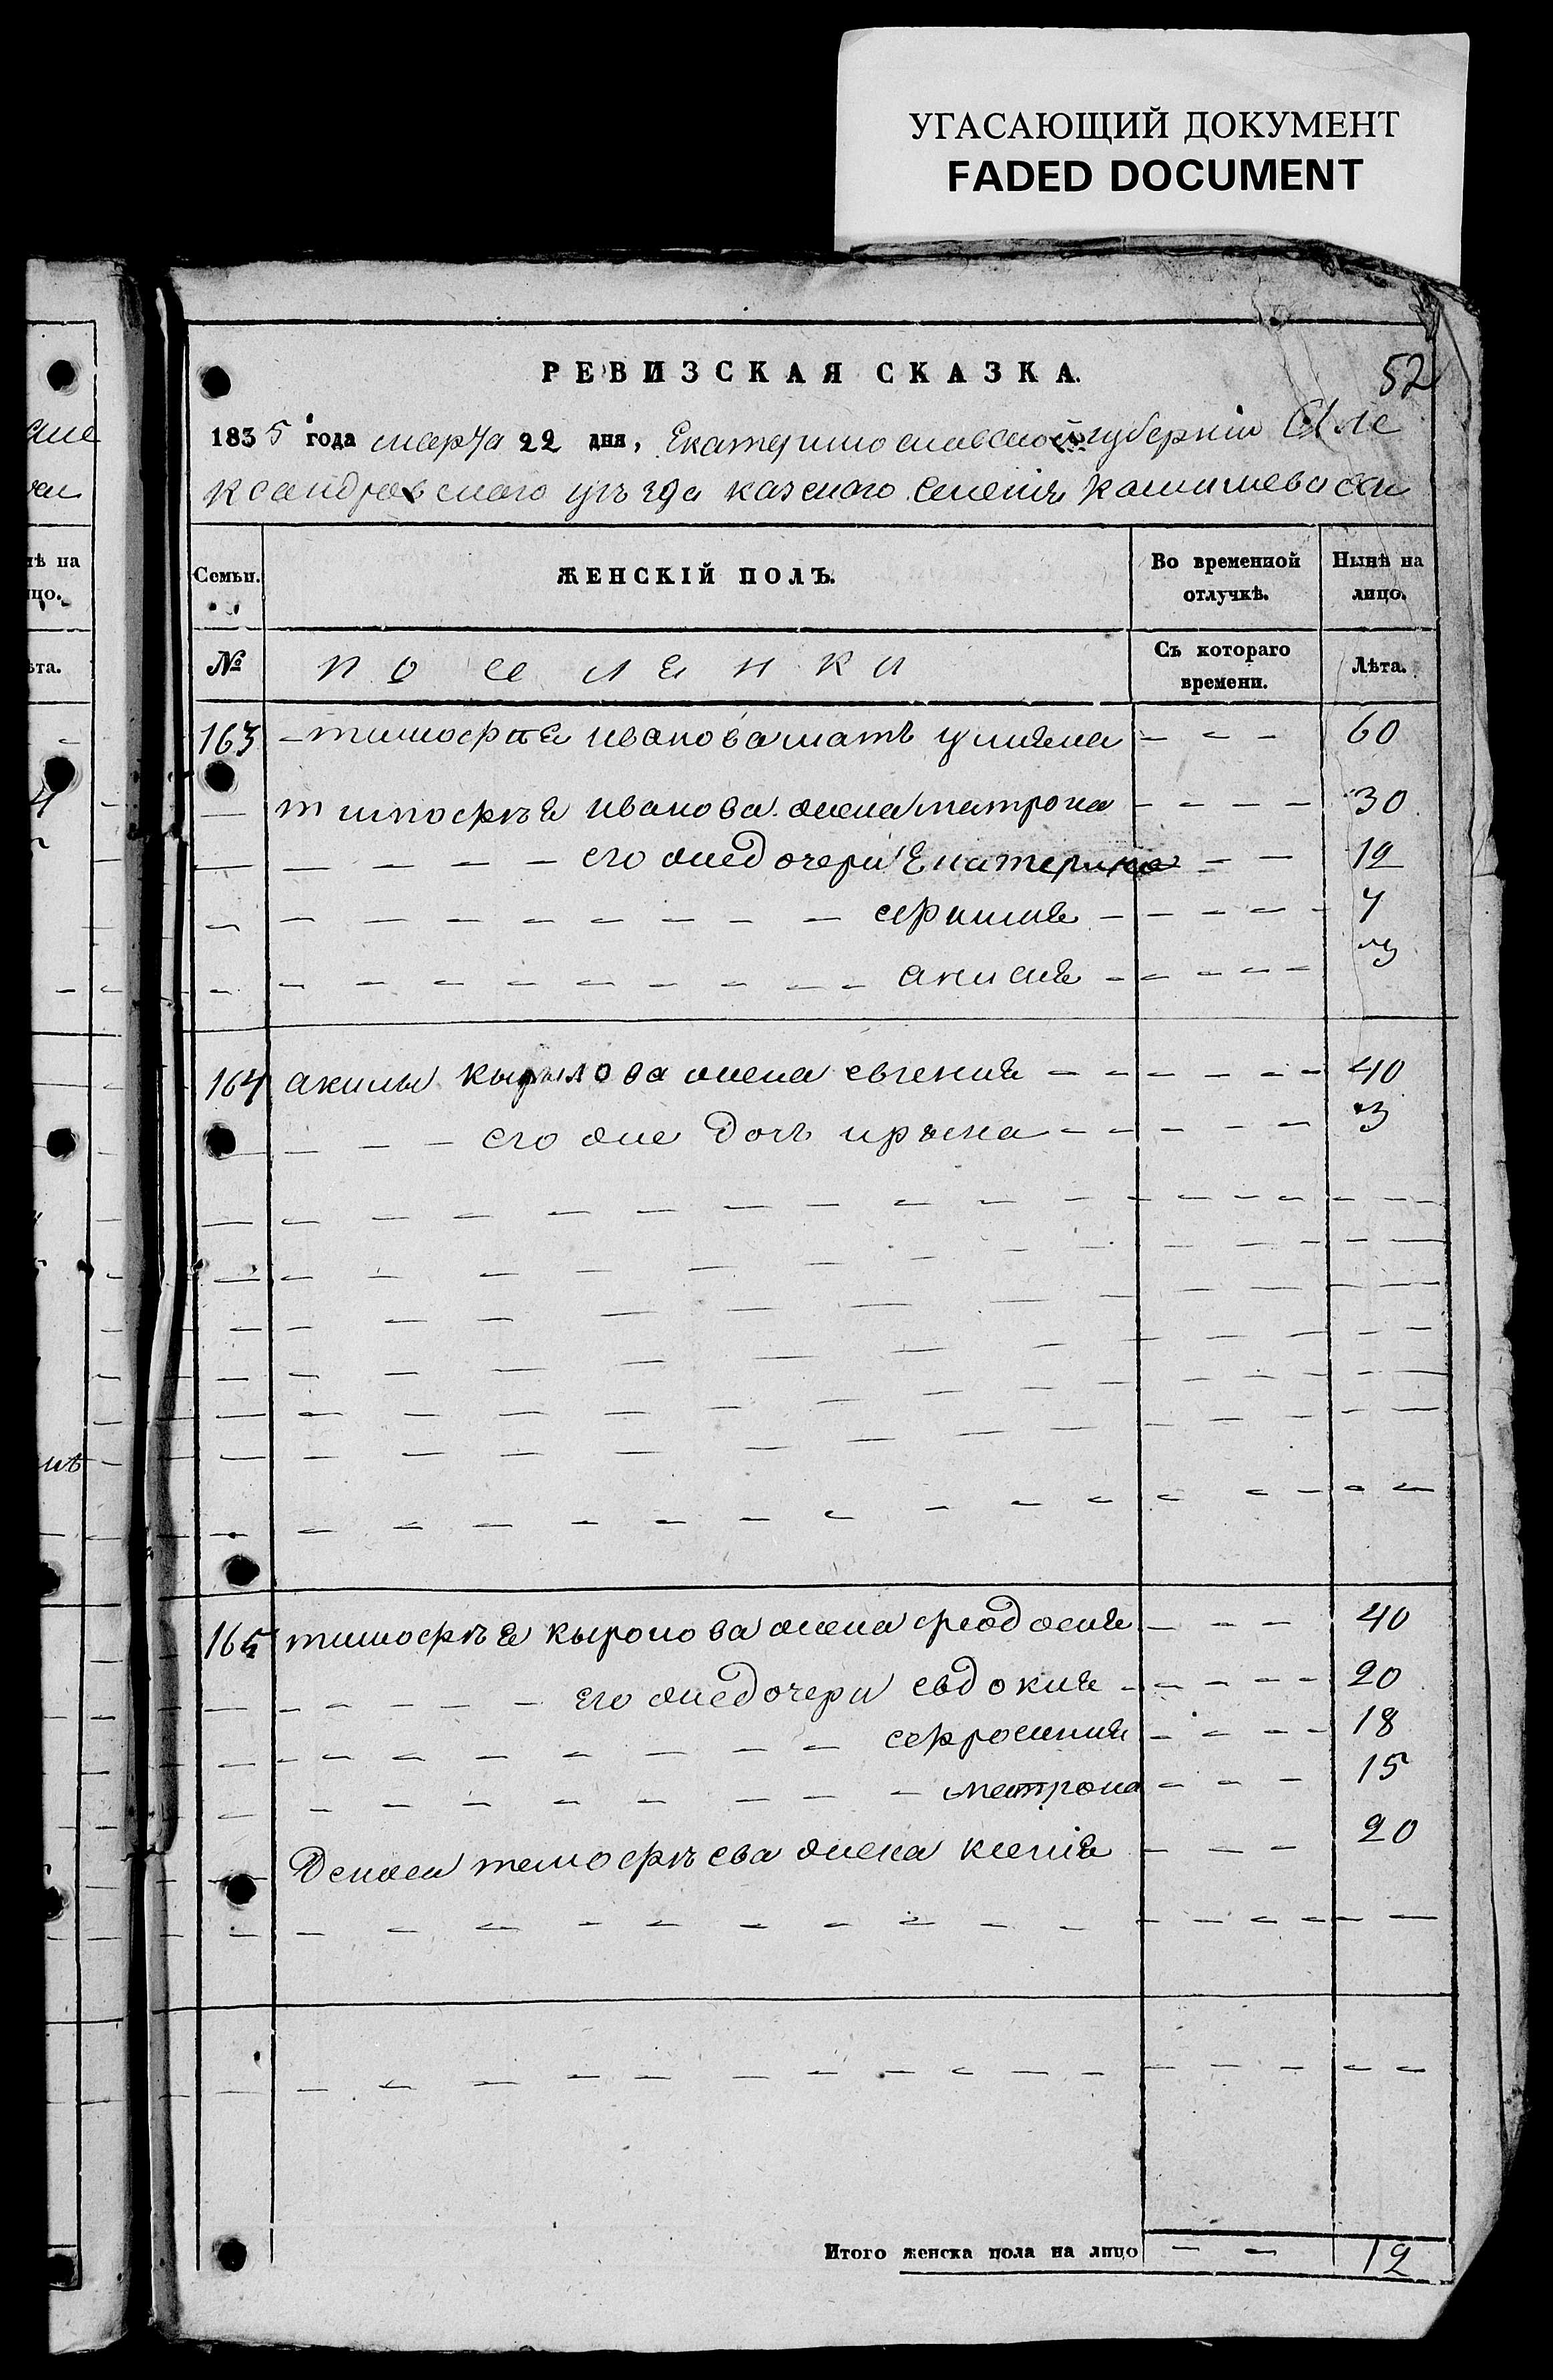 УГАСАЮЩИЙ ДОКУМЕНТ
FADED DOCUMENT
52
РЕВИЗСКАЯ СКАЗКА.
1835 года марта 22 дня, Екатеринославской губерніи Але
ксандровского уъзда казеного селенія
Семьи. ЖЕНСКІЙ ПОЛЪ. Во временной отлучкѣ. Нынѣ на лицо.
№ поселянки Съ котораго времени. Лѣта.
163 тимофѣя иванова мать улияна 60
тимофѣя иванова жена матрона 30
его жедочери Екатерина 12
ефимия
акилия 3
164 акима кырылова жена евгения 40
его же дочь ирына 3
165 тимофѣя кыронова жена феодосия 40
его жедочери евдокия 20
ефросиния 18
матрона 15
Дениса темофѣева жена ксенія 20
Итого женска пола на лицо 12